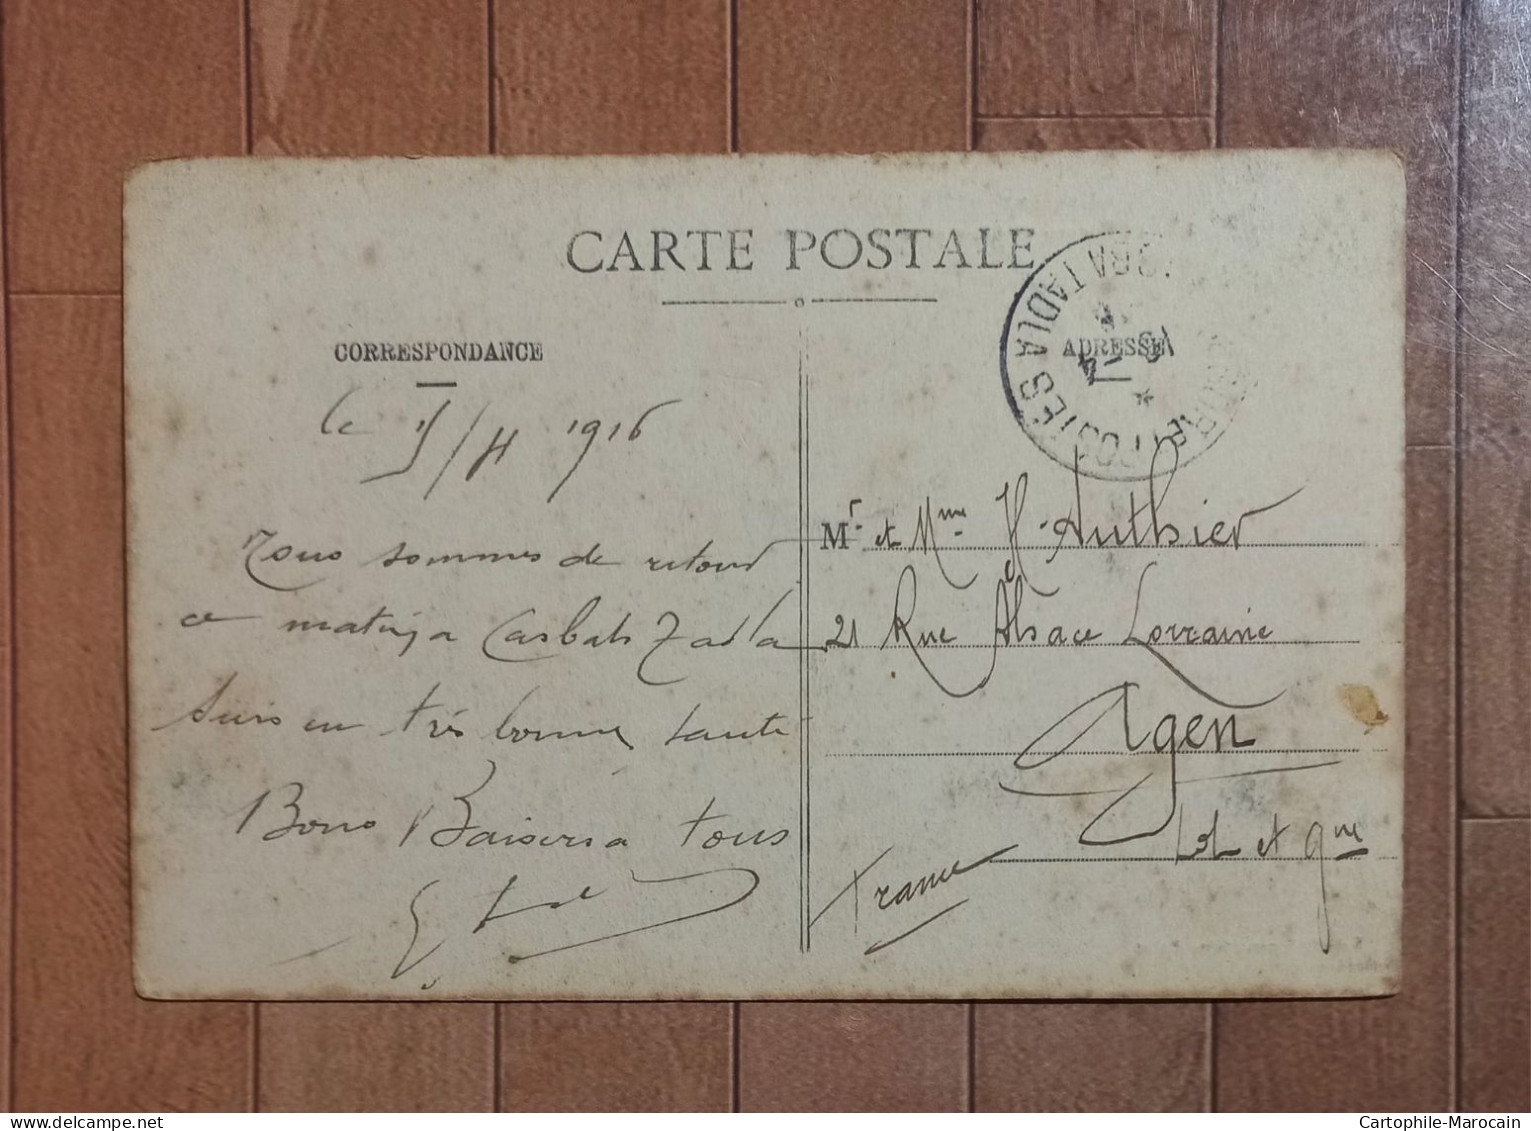 CARTE POSTALE
CORRESPONDANCE
ADRESSE
le 5/4 1916
Nous sommes de retour
ce matin, a Casbah Tadla
suis en très bonne santé
Bons Baisers a tous
TADLA
POSTES
Mr et Mme H. Authier
21 Rue Alsace Lorraine
Agen
Lot et Gne
France
Cartophile-Marocain